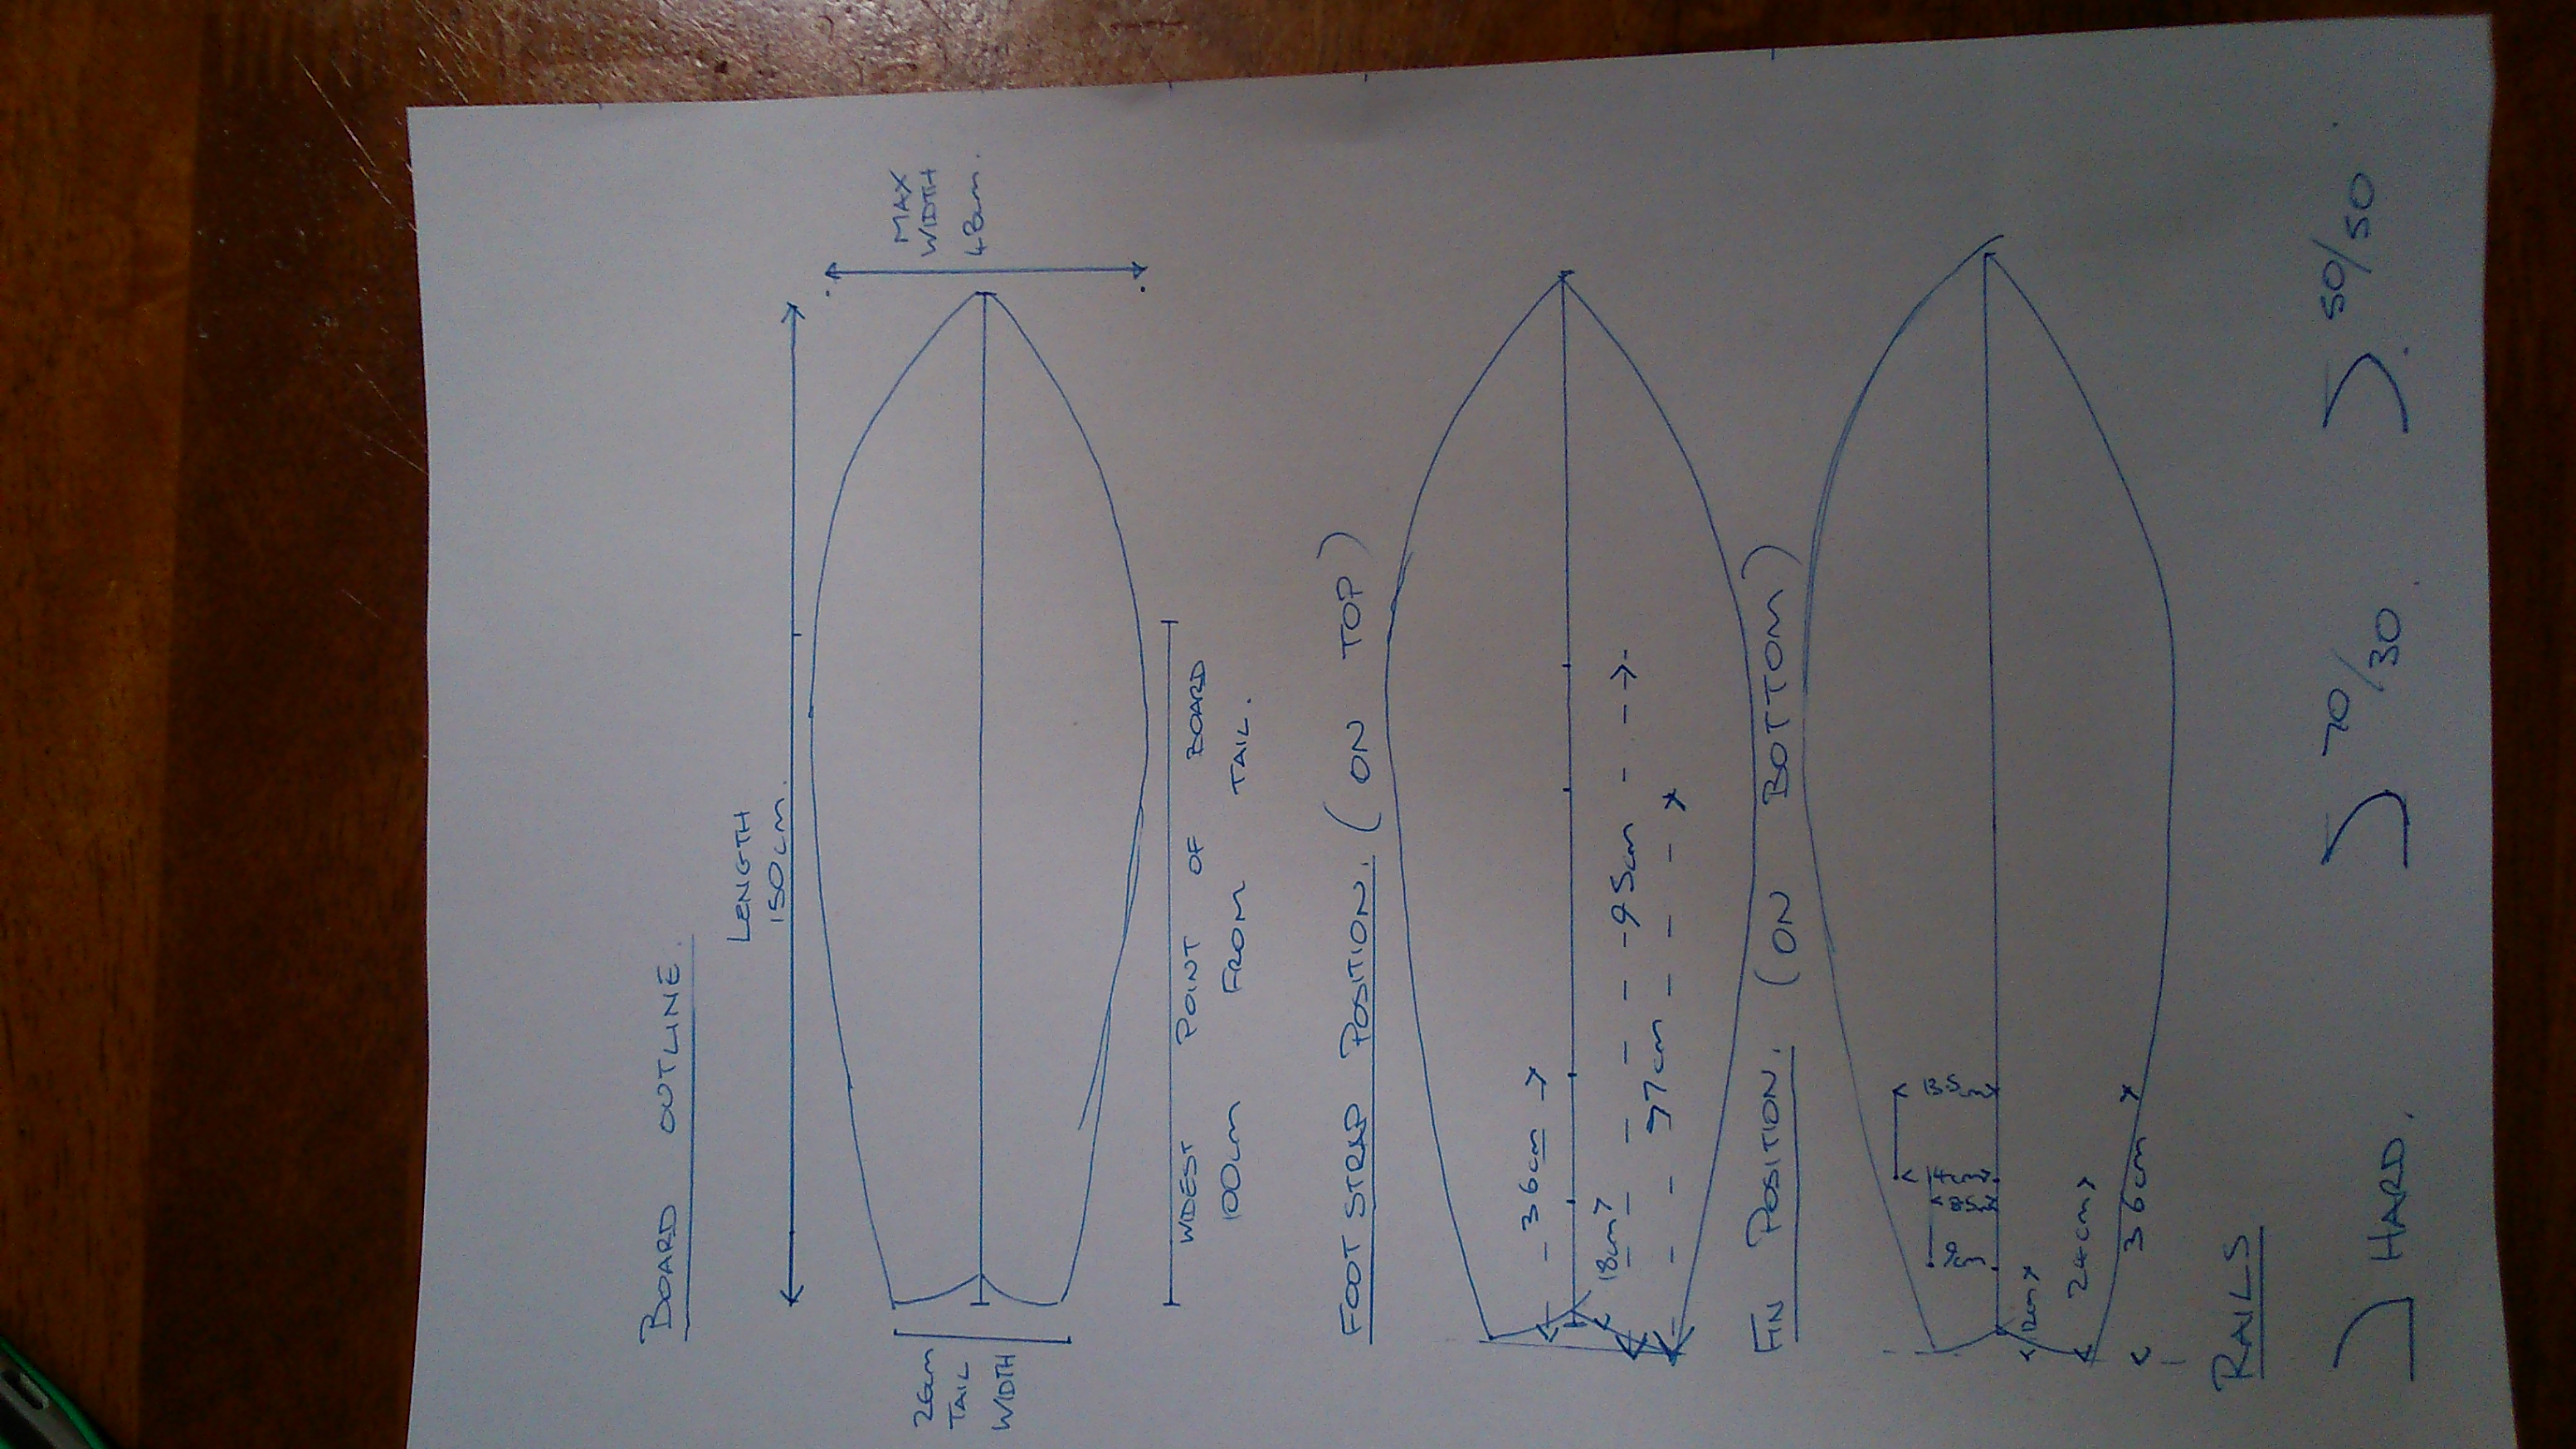 BOARD OUTLINE.
LENGTH
150cm.
MAX
WIDTH
48cm.
26cm
TAIL
WIDTH
WIDEST POINT OF BOARD
100cm FROM TAIL.
FOOT STRAP POSITION. (ON TOP)
36cm
18cm
95cm
77cm
FIN POSITION. (ON BOTTOM)
13.5
8.5
12cm
24cm
36cm
RAILS
HARD.
70/30
50/50